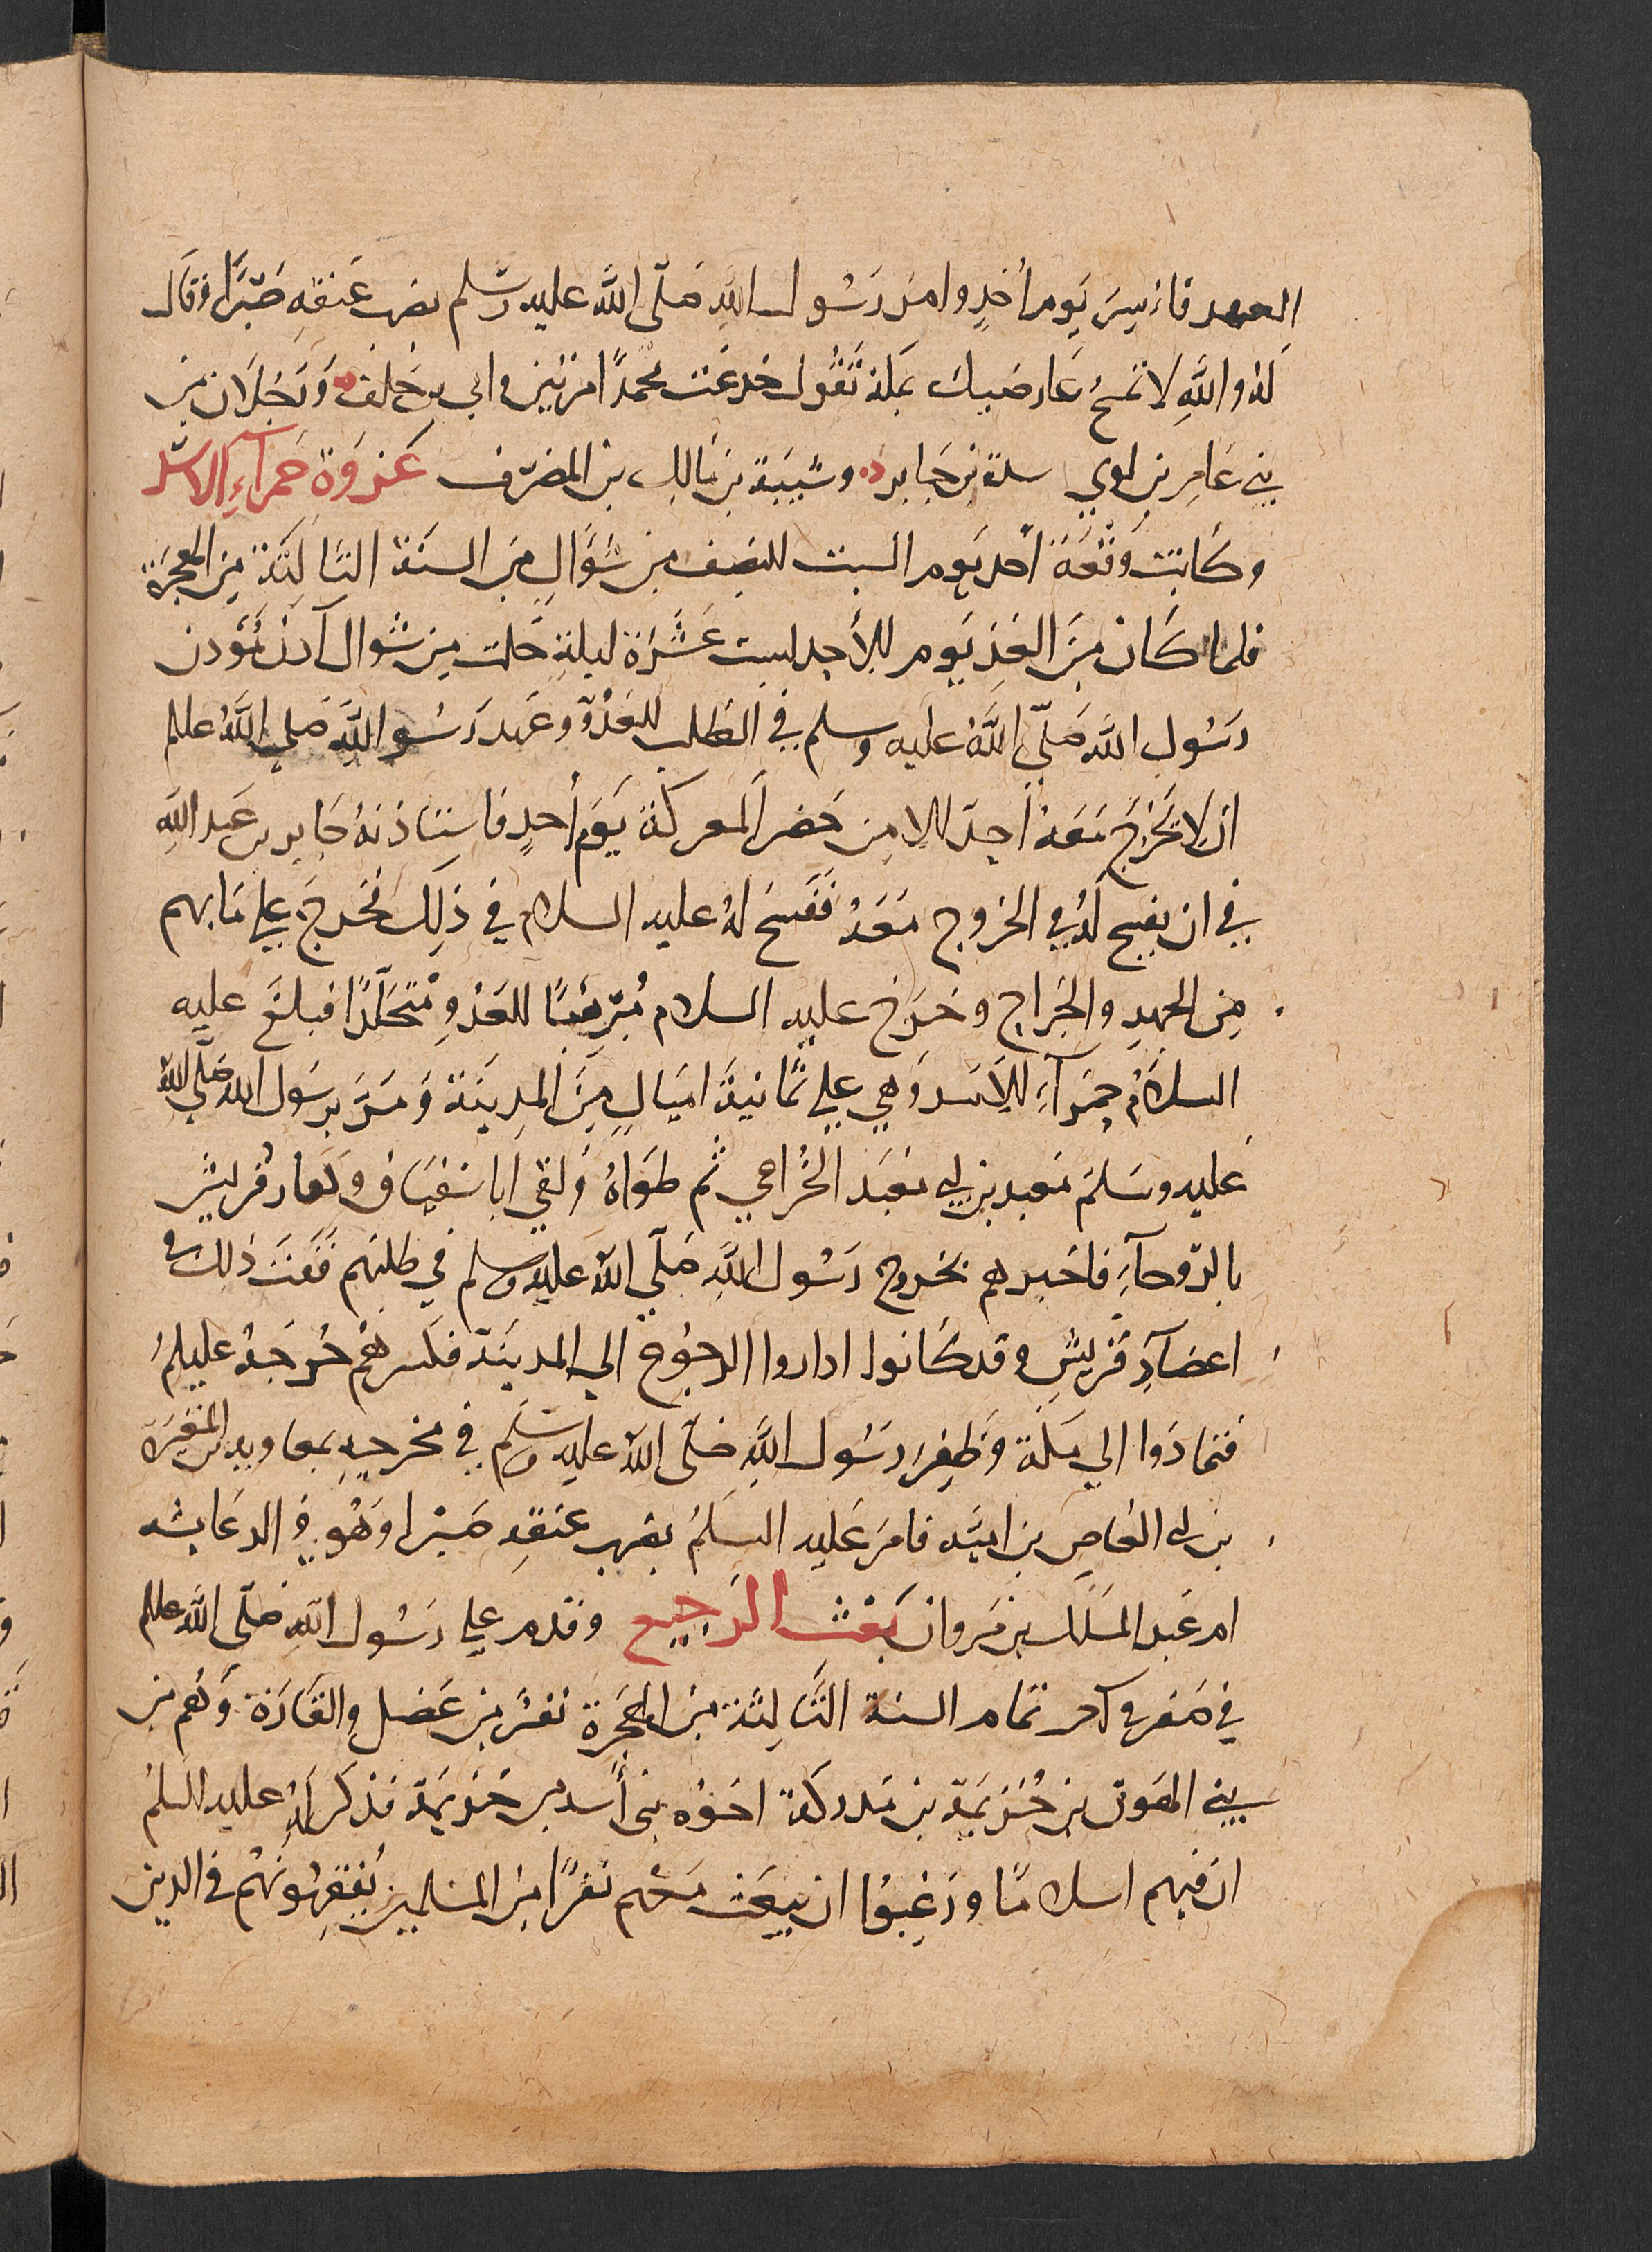 العهد فاسر يوم أحد وامر رسول الله صلى الله عليه وسلم بضرب عنقه صبرا وقال
له والله لا تمسح عارضيك بمكة تقول خدعت محمدا مرتين وابي بن خلف ورجلان من
بني عامر بن لوي عبيدة بن جابر وشيبة بن مالك بن المضرف غزوة حمراء الاسد
وكانت وقعة أحد يوم السبت للنصف من شوال من السنة الثالثة من الهجرة
فلما كان من الغد يوم الأحد لست عشرة ليلة خلت من شوال آذن مؤذن
رسول الله صلى الله عليه وسلم في الطلب للعدو وعهد رسول الله صلى الله عليلم
ان لا يخرج معه أحد الا من حضر المعركة يوم أحد فاستاذنه جابر بن عبد الله
في ان يفسح له في الخروج معه ففسح له عليه السلام في ذلك فخرج علي ما بهم
من الجهد والجراح وخرج عليه السلام مرهبا للعدو متجلدا فبلغ عليه
السلام حمراء الاسد وهي علي ثمانية اميال من المدينة ومر برسول الله صلى الله
عليه وسلم معبد بن ابي معبد الخزاعي ثم طواه ولقي ابا سفيان وكفار قريش
بالروحاء فاخبرهم بخروج رسول الله صلى الله عليه وسلم في طلبهم ففت ذلك في
اعضاد قريش وقد كانوا ارادوا الرجوع الي المدينة فكسرهم خروجه عليلم
فتمادوا الي مكة وظفر رسول الله صلى الله عليه وسلم في مخرجه بمعاوية بن المغيرة
بن ابي العاص بن امية فامر عليه السلم بضرب عنقه صبرا وهو والد عايشه
ام عبد الملك بن مروان بعث الرجيع وقدم علي رسول الله صلى الله عليلم
في صفر في آخر تمام السنة الثالثة من الهجرة نفر من عضل والقارة وهم من
بني الهون بن خزيمة بن مدركة اخوه بني أسد بن خزيمة فذكر له عليه السلم
ان فيهم اسلاما ورغبوا ان يبعث معهم نفرا من المسلمين يفقهونهم في الدين